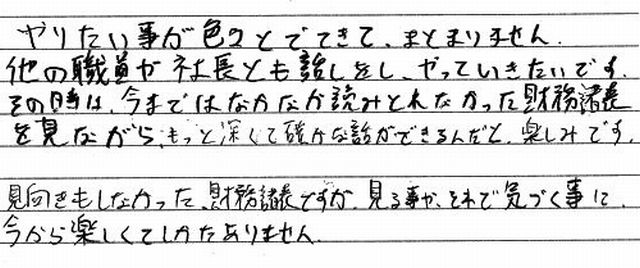 やりたい事が色々とでてきて、まとまりません.
他の職員が社長とも話しをし、やっていきたいです.
その時は、今まではなかなか読みとれなかった財務諸表
を見ながら、もっと深くて確かな話ができるんだと、楽しみです.
見向きもしなかった、財務諸表ですが、見る事か、それで気づく事に.
今から楽しくてしかたありません.